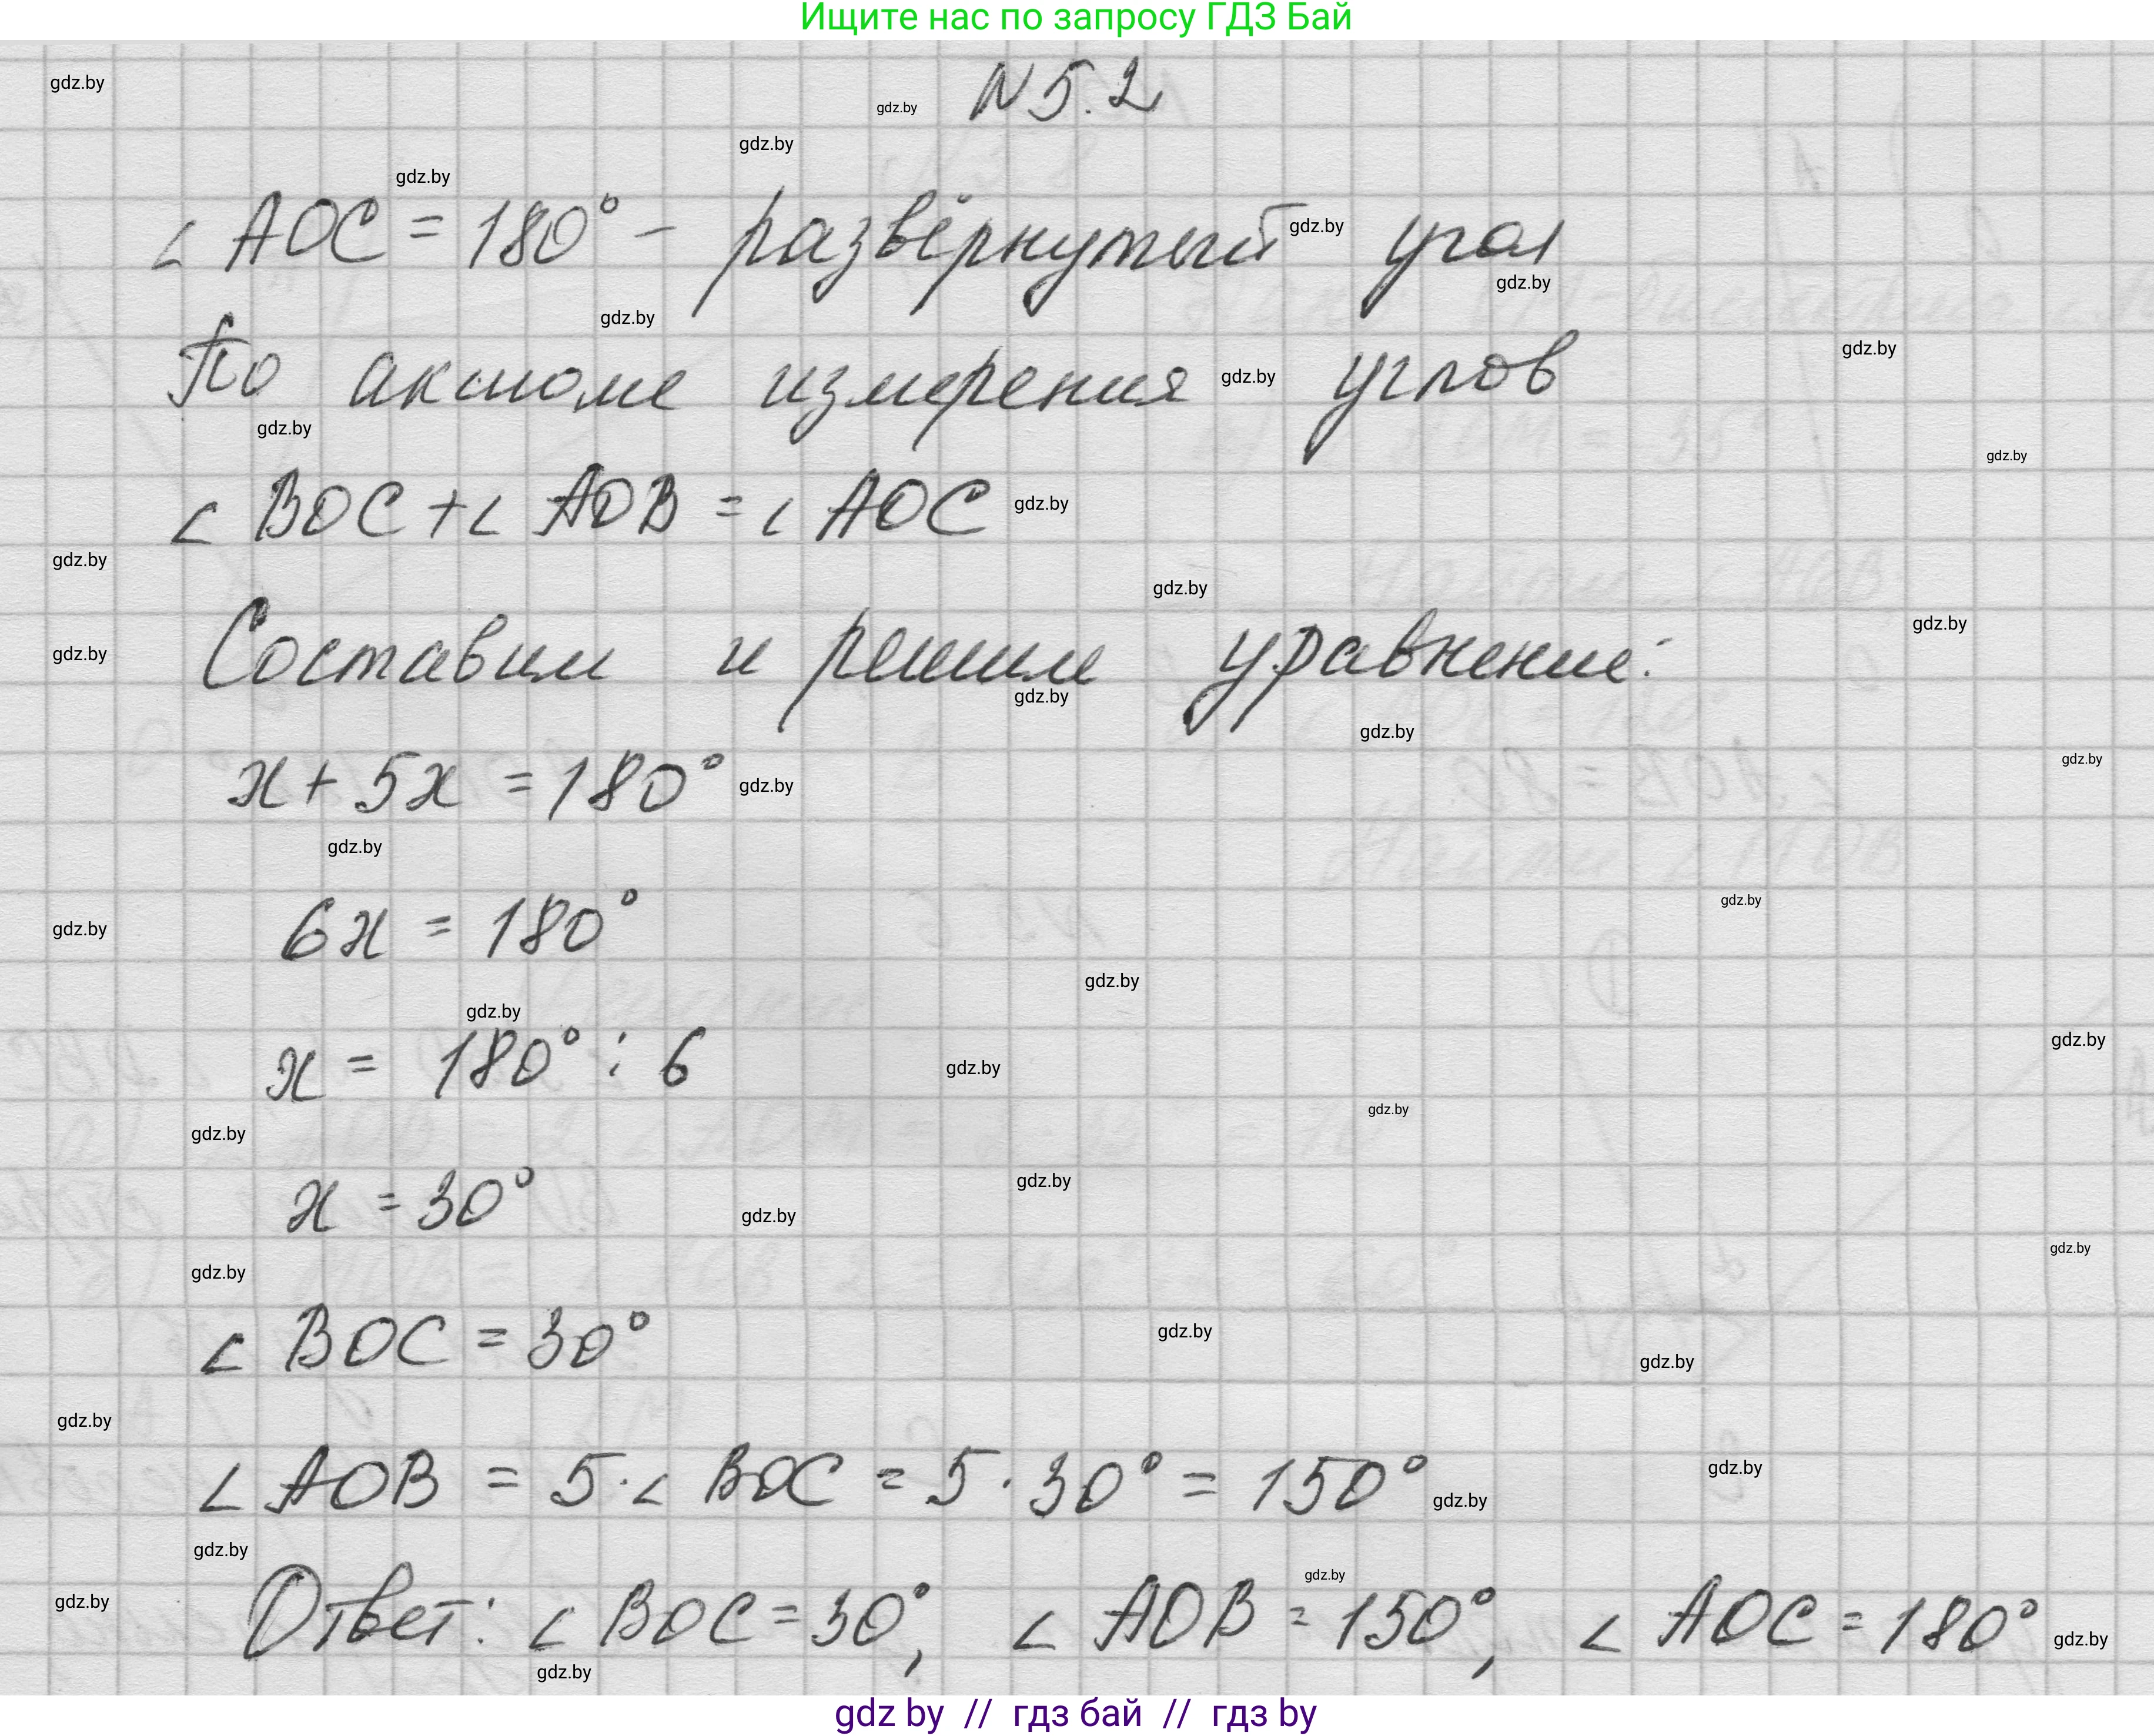 Ищите нас по запросу ГДЗ Бай
N 5.2
∠ AOC = 180° – развёрнутый угол
По аксиоме измерения углов
∠ BOC + ∠ AOB = ∠ AOC
Составим и решим уравнение:
x + 5x = 180°
6x = 180°
x = 180° : 6
x = 30°
∠ BOC = 30°
∠ AOB = 5 · ∠ BOC = 5 · 30° = 150°
Ответ: ∠ BOC = 30°, ∠ AOB = 150°, ∠ AOC = 180°
gdz by // гдз бай // гдз by